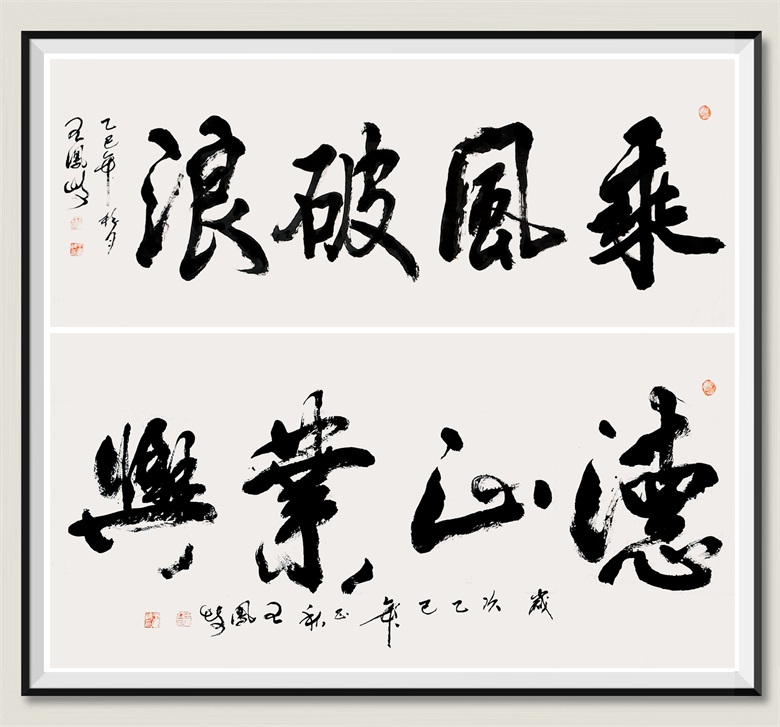 乘風破浪
乙巳年秋月
王鳳岐
德正業興
歲次乙巳年正秋王鳳岐